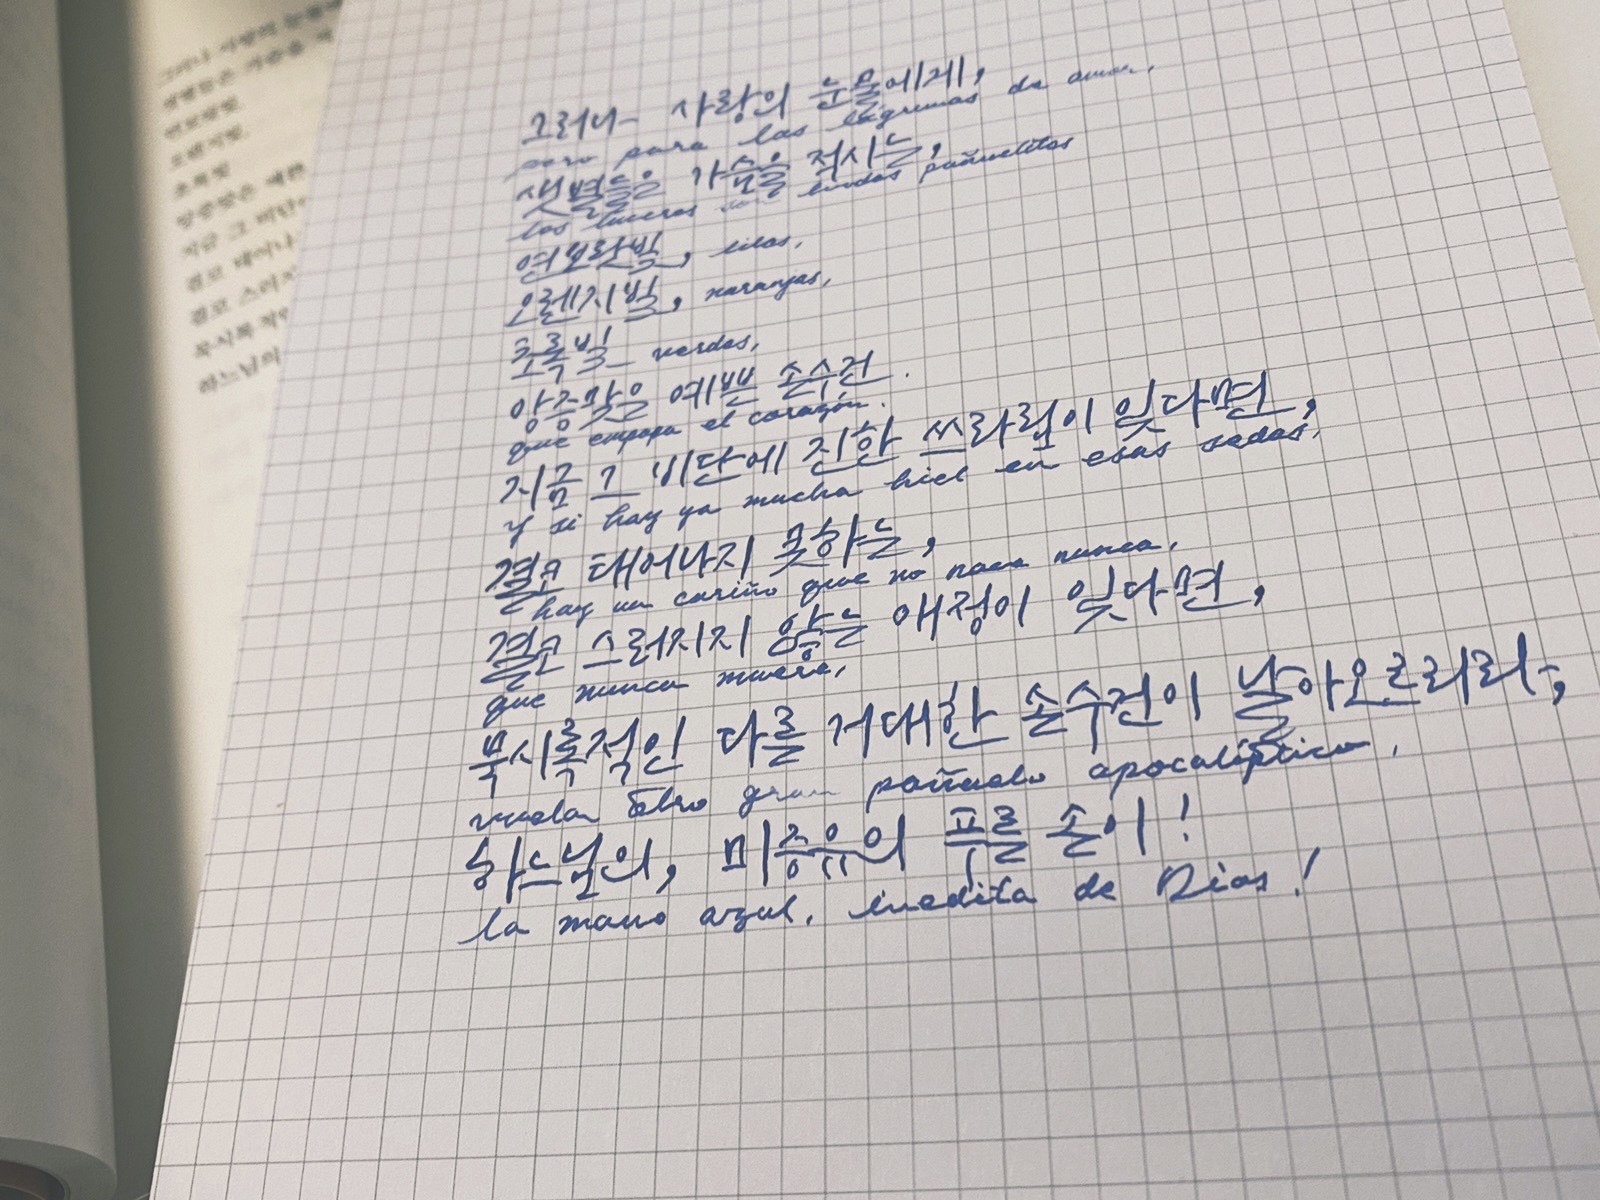 그러나 사랑의 눈물에게,
pero para las lágrimas de amor,
샛별들은 가슴을 적시는,
los luceros son lindos pañuelitos
연보랏빛, lilas,
오렌지빛, naranjas,
초록빛 verdes,
앙증맞은 예쁜 손수건.
que empapa el corazón.
지금 그 비단에 진한 쓰라림이 있다면,
Y si hay ya mucha hiel en esas sedas,
결코 태어나지 못하는,
hay un cariño que no nace nunca,
결코 스러지지 않는 애정이 있다면,
que nunca muere,
묵시록적인 다를 거대한 손수건이 날아오르리라,
vuela otro gran pañuelo apocalíptico,
하느님의, 미증유의 푸른 손이!
la mano azul, inedita de Dios!
그러나 사랑의 눈물에
샛별들은 가슴을 적
연보랏빛,
오렌지빛,
초록빛
앙증맞은 예쁜
지금 그 비단에
결코 태어나
결코 스러지
묵시록적인
하느님의